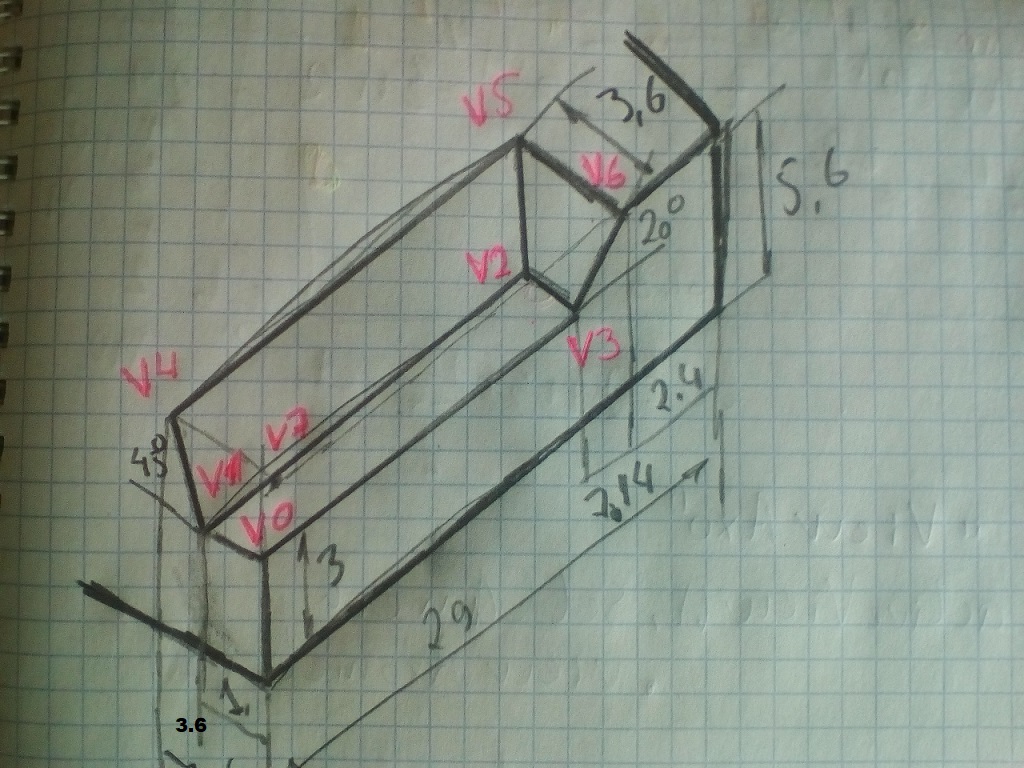 V5
3,6
V6
5.6
20°
V2
V3
V4
2.4
45°
V7
V1
V0
3
2.14
29
1.
3.6